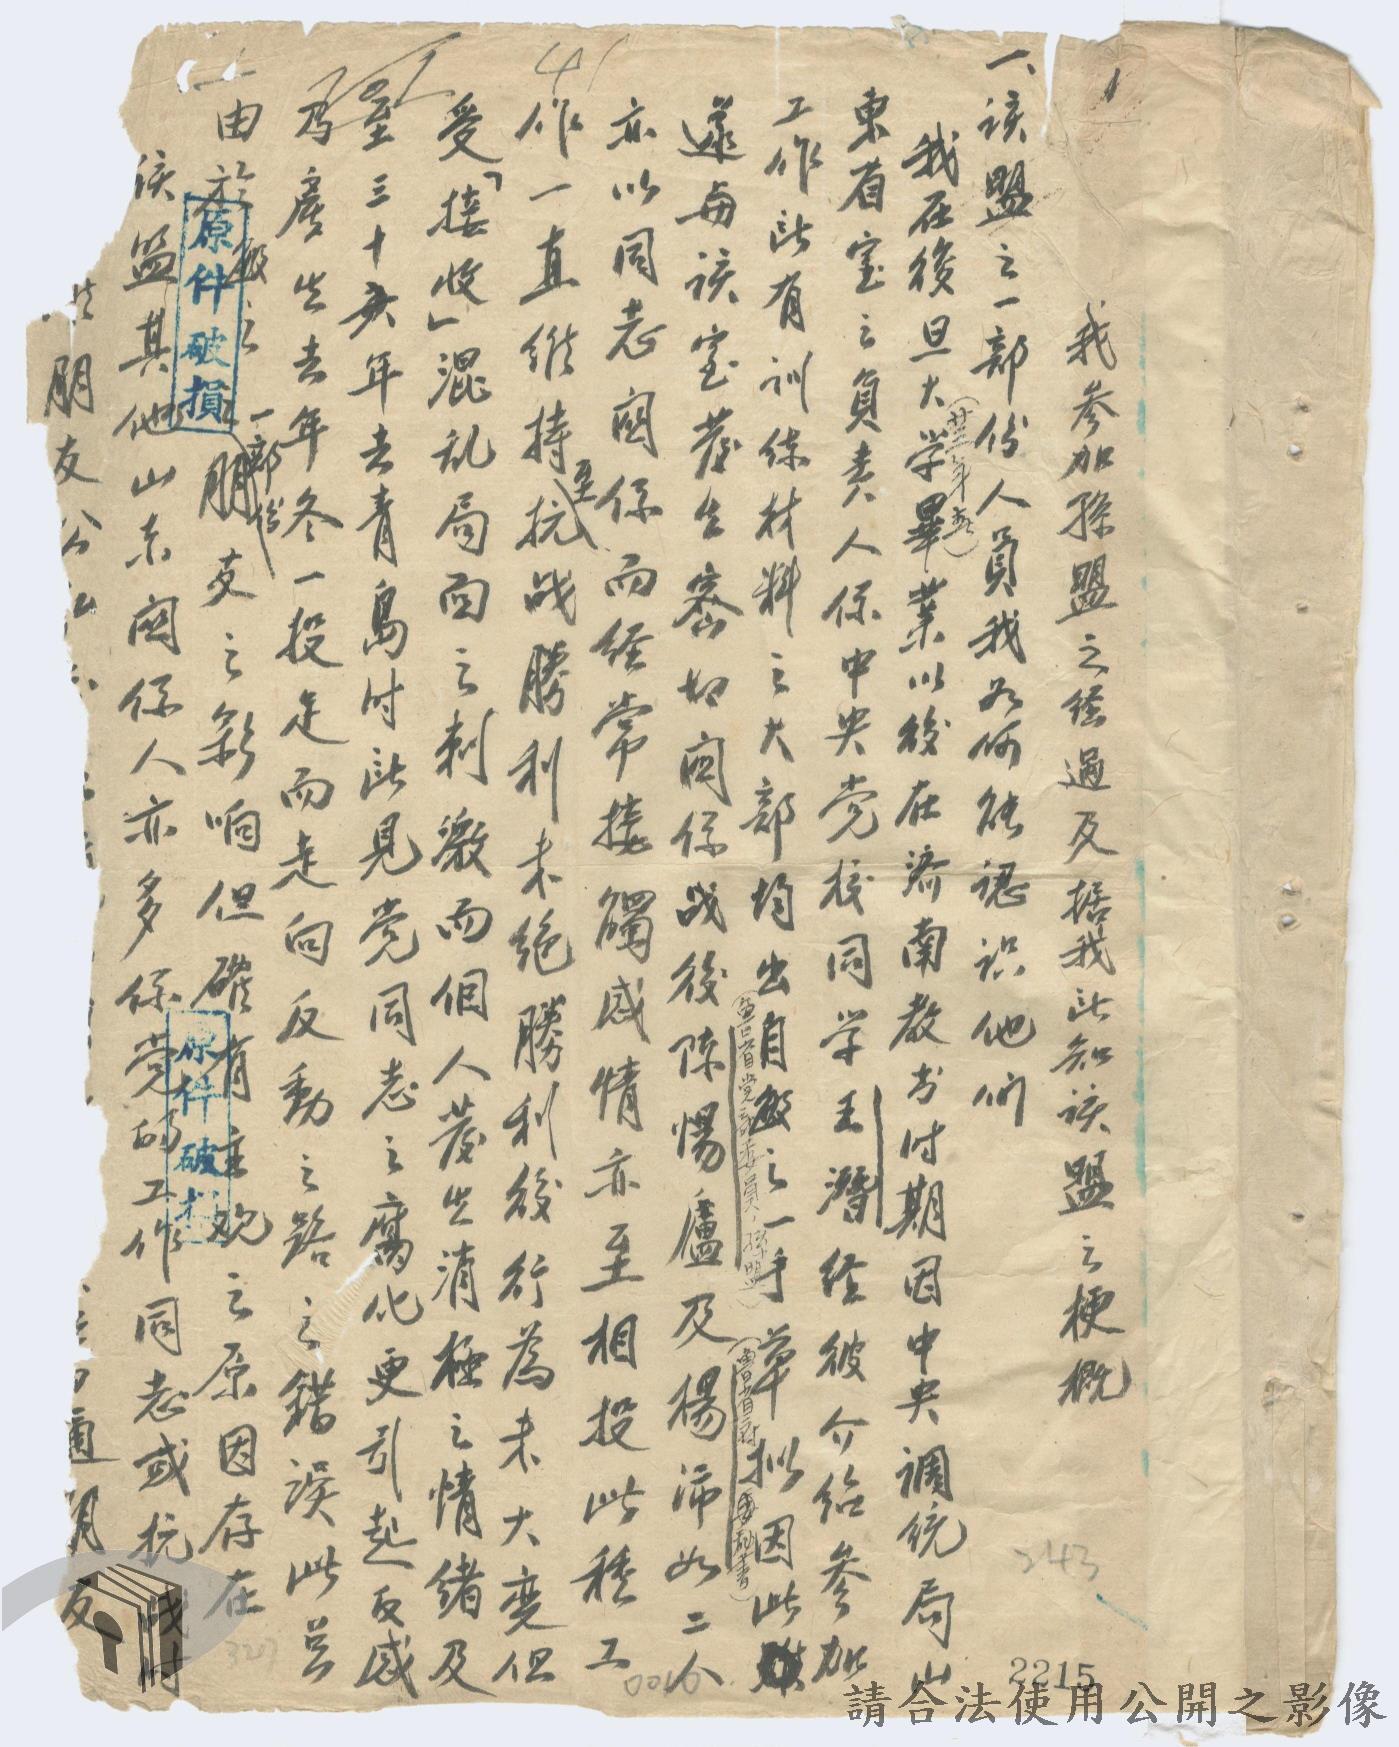 我参加孫盟之経過及据我所知該盟之梗概
一、該盟之一部份人員我如何能認识他们
我在復旦大学畢業以後在济南教书时期因中央调統局山
(廿三年 )
東省室之負责人係中央党校同学王濳经彼介绍参加
工作所有训练材料之大部均出自 之一手草拟因此
遂与該室发生密切関係战後陈惕廬及楊沛如二人
(鲁省党部委員、孫盟)
(鲁省府 秘書)
亦以同志関係而経常接觸感情亦至相投此種工
作一直维持至抗战勝利未绝勝利後行為未大变但
受「接收」混乱局面之刺激而個人发生消極之情绪及
至三十六年去青島时所見党同志之腐化更引起反感
乃産生去年冬一投足而走向反動之路之錯誤此豈
由於 一部份朋友之影响但確有主观之原因存在
該盟其他山东関係人亦多係党的工作同志或抗战时
朋友
原件破損
原件破損
41
243
327
0010
2215
請合法使用公開之影像